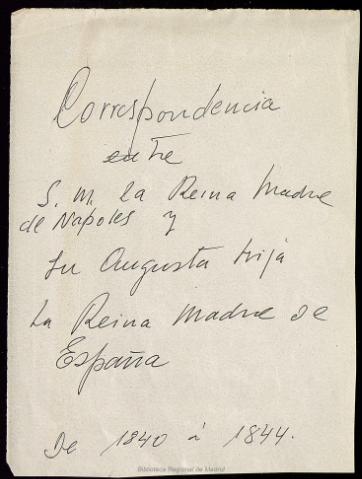 Correspondencia
entre
S. M. la Reina Madre
de Napoles y
Su Augusta hija
La Reina Madre de
España
De 1840 á 1844.
Biblioteca Regional de Madrid